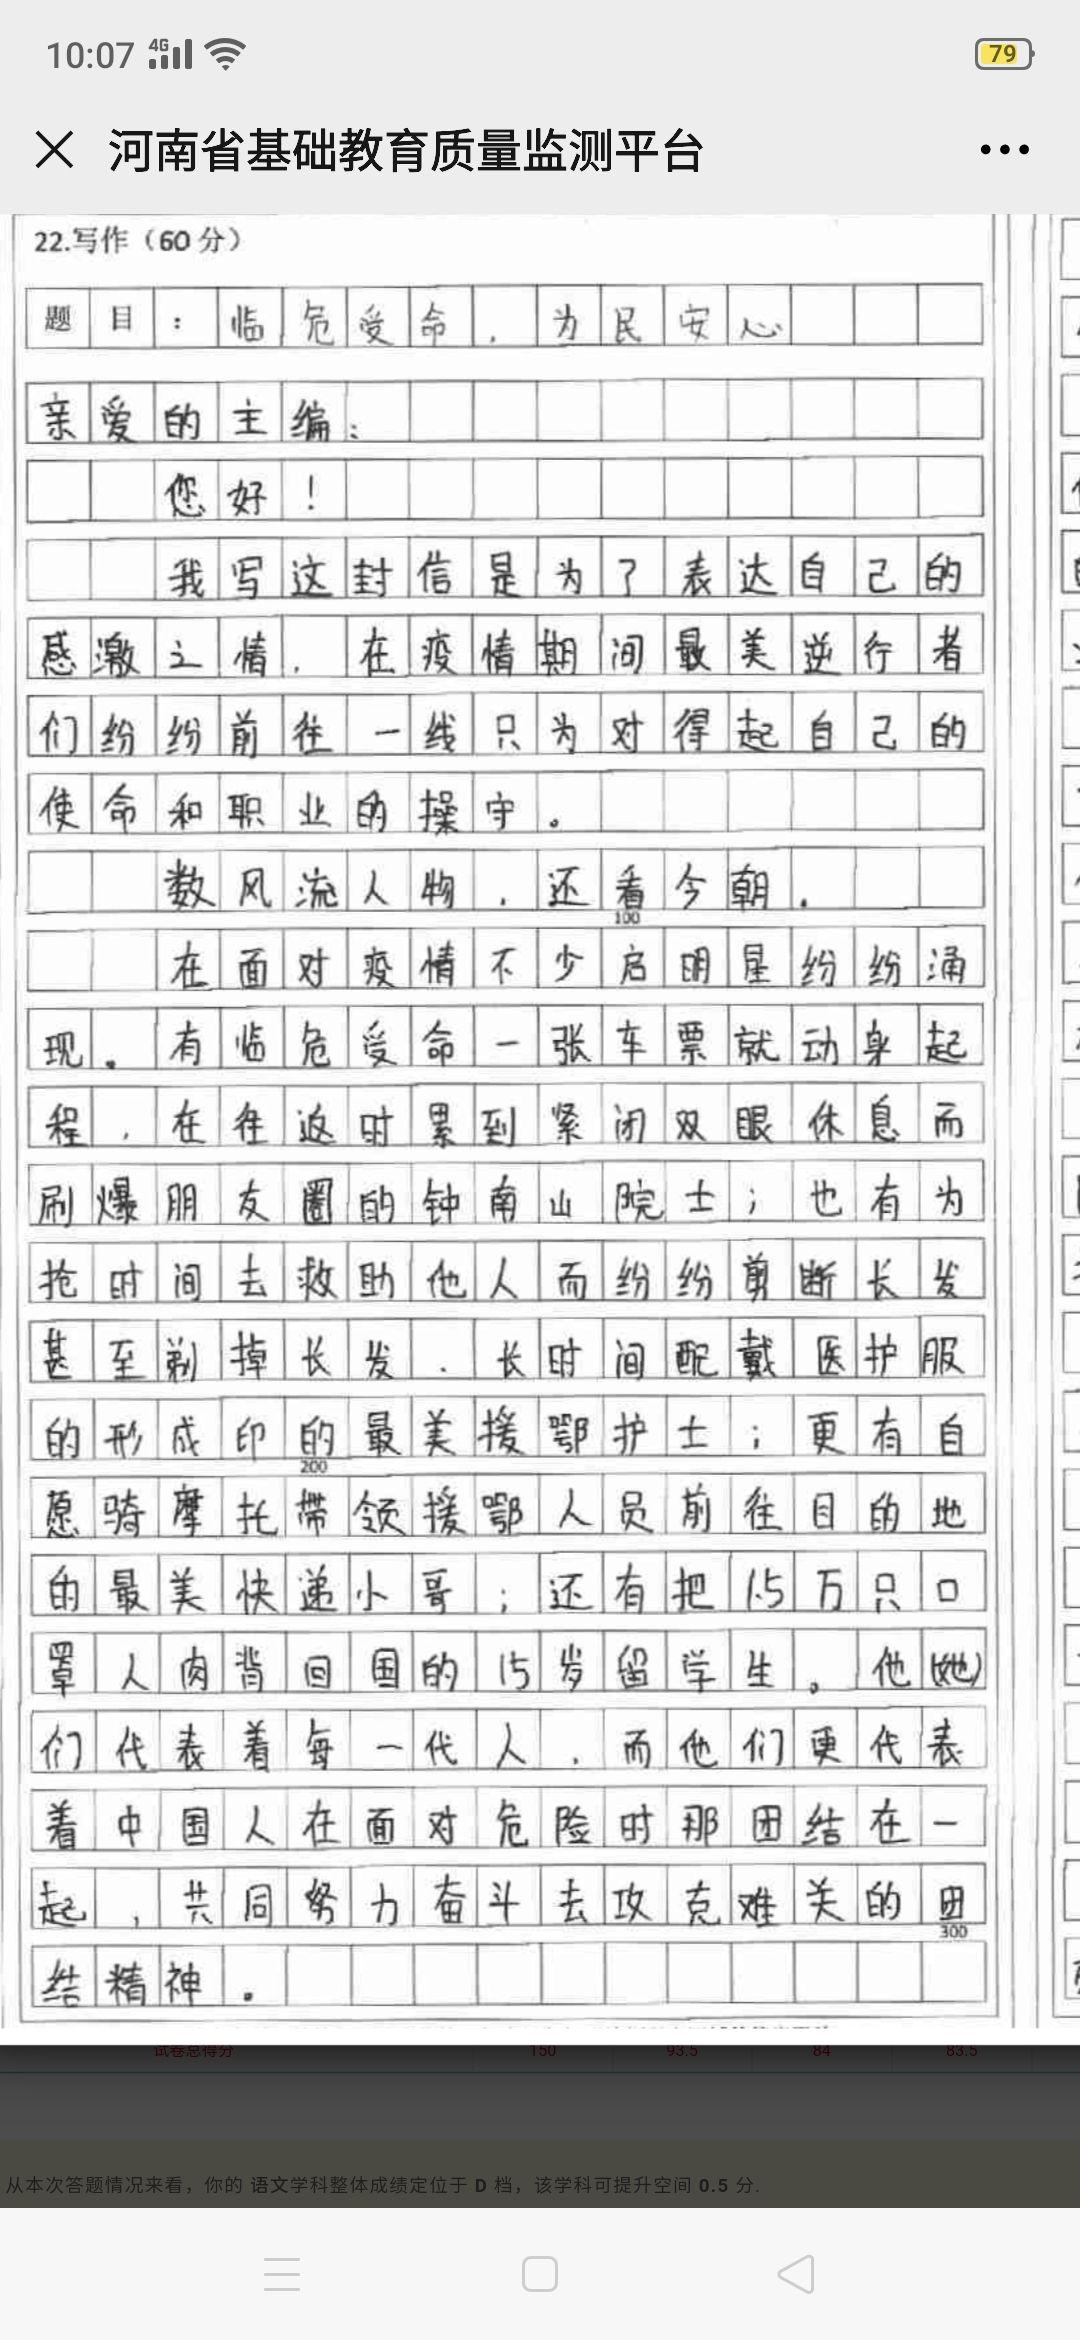 10:07 4G 79
河南省基础教育质量监测平台
22.写作（60 分）
题目：临危受命，为民安心
亲爱的主编：
您好！
我写这封信是为了表达自己的
感激之情，在疫情期间最美逆行者
们纷纷前往一线只为对得起自己的
使命和职业的操守。
数风流人物，还看今朝。
100
在面对疫情不少启明星纷纷涌
现。有临危受命一张车票就动身起
程，在往返时累到紧闭双眼休息而
刷爆朋友圈的钟南山院士；也有为
抢时间去救助他人而纷纷剪断长发
甚至剃掉长发，长时间配戴医护服
的形成印的最美援鄂护士；更有自
200
愿骑摩托带领援鄂人员前往目的地
的最美快递小哥；还有把1.5万只口
罩人肉背回国的15岁留学生。他(她)
们代表着每一代人，而他们更代表
着中国人在面对危险时那团结在一
起，共同努力奋斗去攻克难关的团
300
结精神。
试卷总得分 150 93.5 84 83.5
从本次答题情况来看，你的 语文学科整体成绩定位于 D 档，该学科可提升空间 0.5 分.